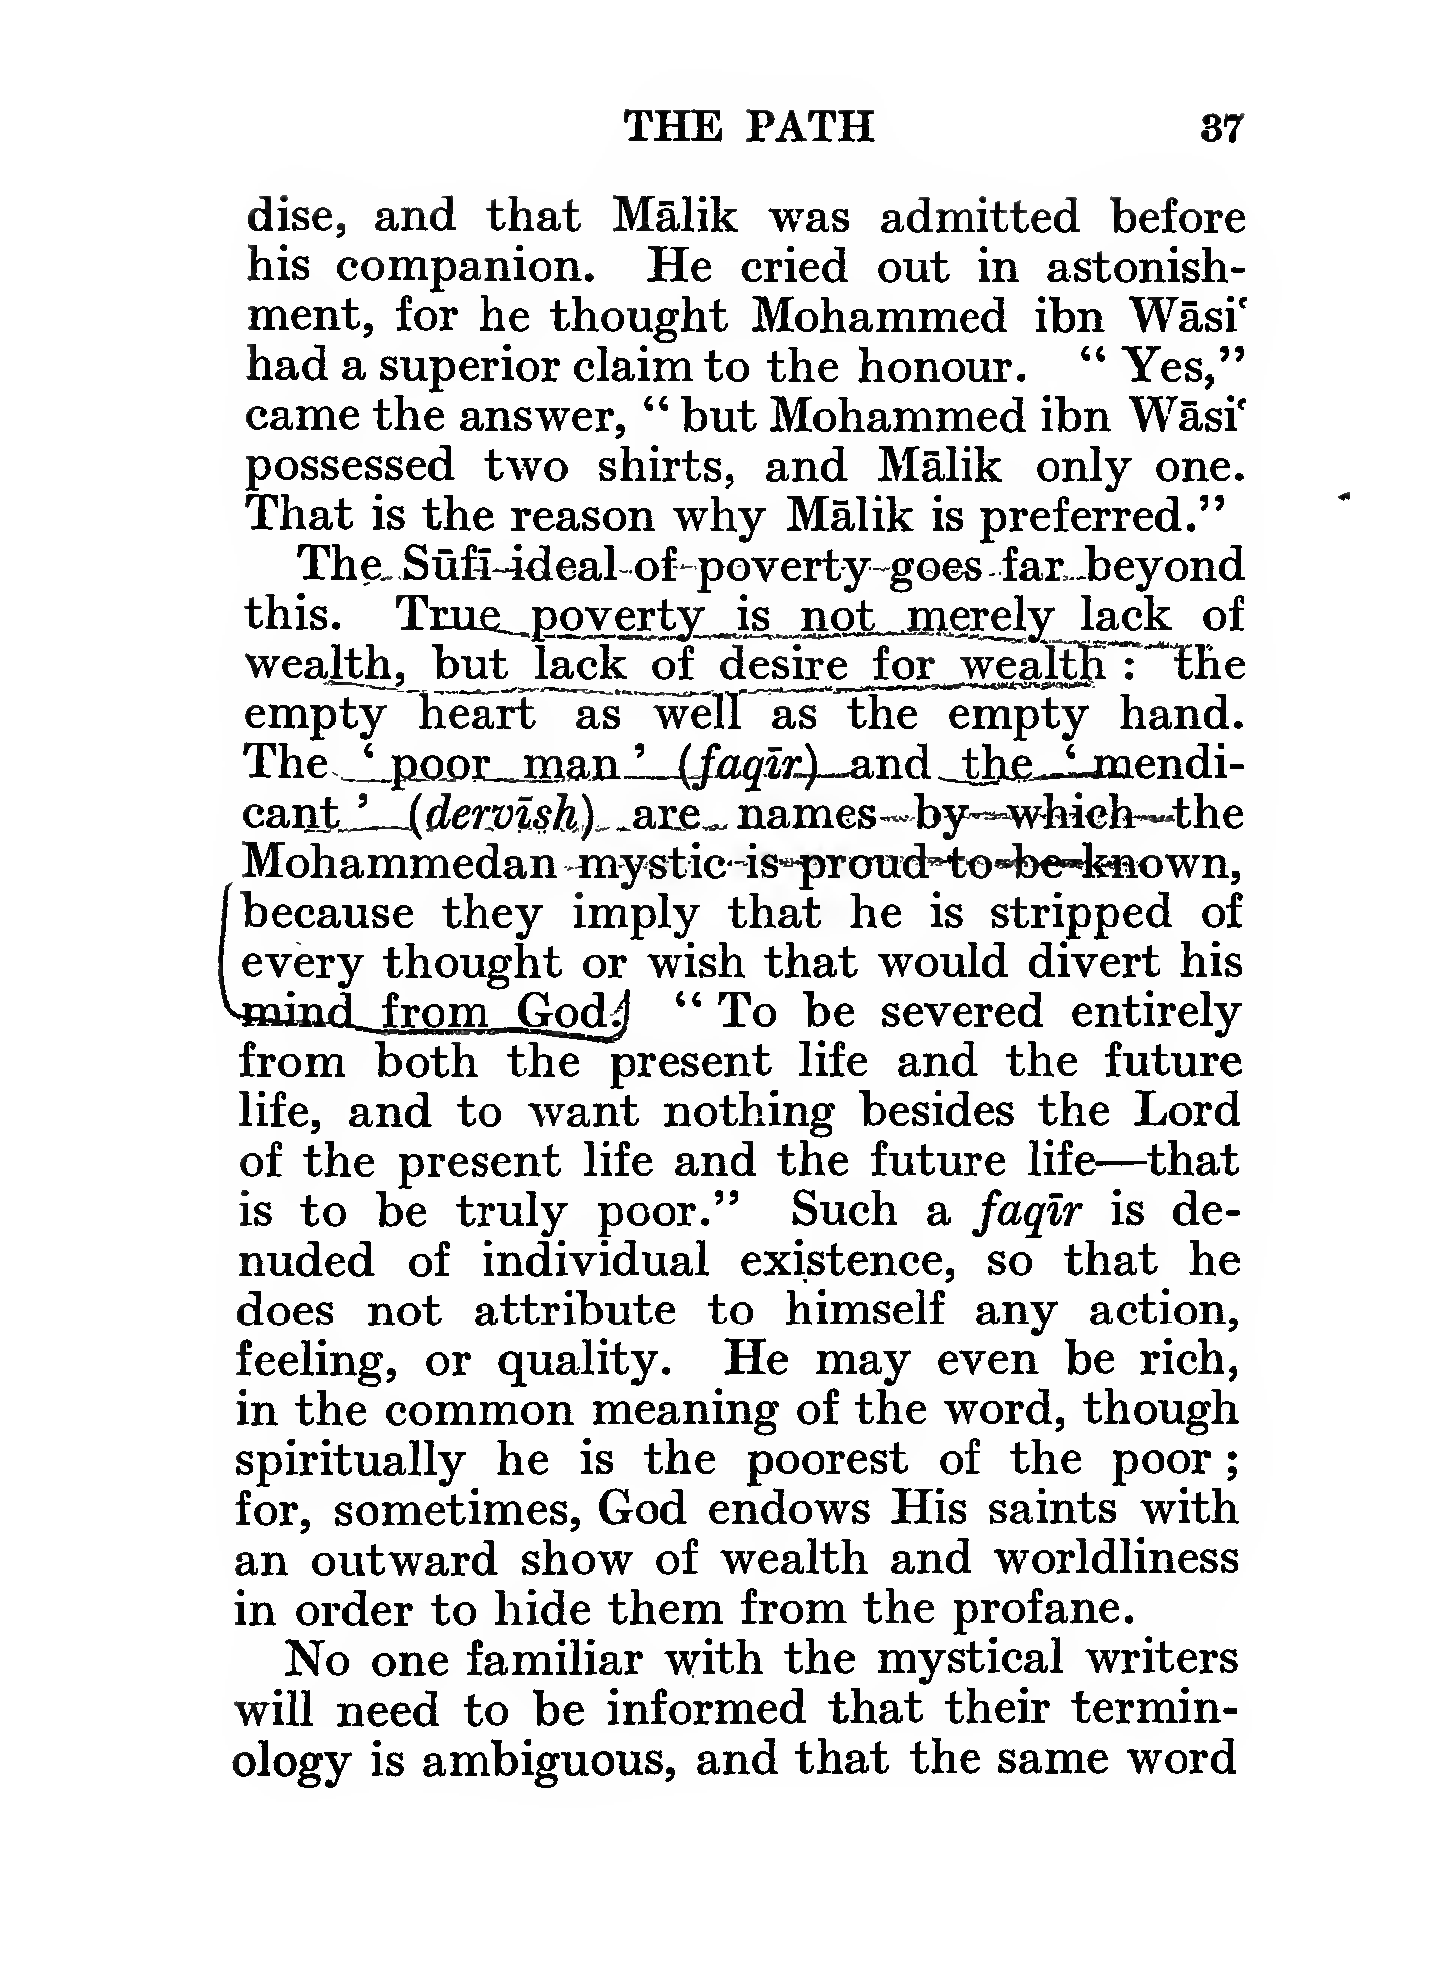 THE PATH 37
dise, and that Mālik was admitted before
his companion. He cried out in astonish-
ment, for he thought Mohammed ibn Wāsiʿ
had a superior claim to the honour. “ Yes,”
came the answer, “ but Mohammed ibn Wāsiʿ
possessed two shirts, and Mālik only one.
That is the reason why Mālik is preferred.”
The Sūfī ideal of poverty goes far beyond
this. True poverty is not merely lack of
wealth, but lack of desire for wealth : the
empty heart as well as the empty hand.
The ‘ poor man ’ (faqīr) and the ‘ mendi-
cant ’ (dervīsh) are names by which the
Mohammedan mystic is proud to be known,
because they imply that he is stripped of
every thought or wish that would divert his
mind from God. “ To be severed entirely
from both the present life and the future
life, and to want nothing besides the Lord
of the present life and the future life—that
is to be truly poor.” Such a faqīr is de-
nuded of individual existence, so that he
does not attribute to himself any action,
feeling, or quality. He may even be rich,
in the common meaning of the word, though
spiritually he is the poorest of the poor ;
for, sometimes, God endows His saints with
an outward show of wealth and worldliness
in order to hide them from the profane.
No one familiar with the mystical writers
will need to be informed that their termin-
ology is ambiguous, and that the same word